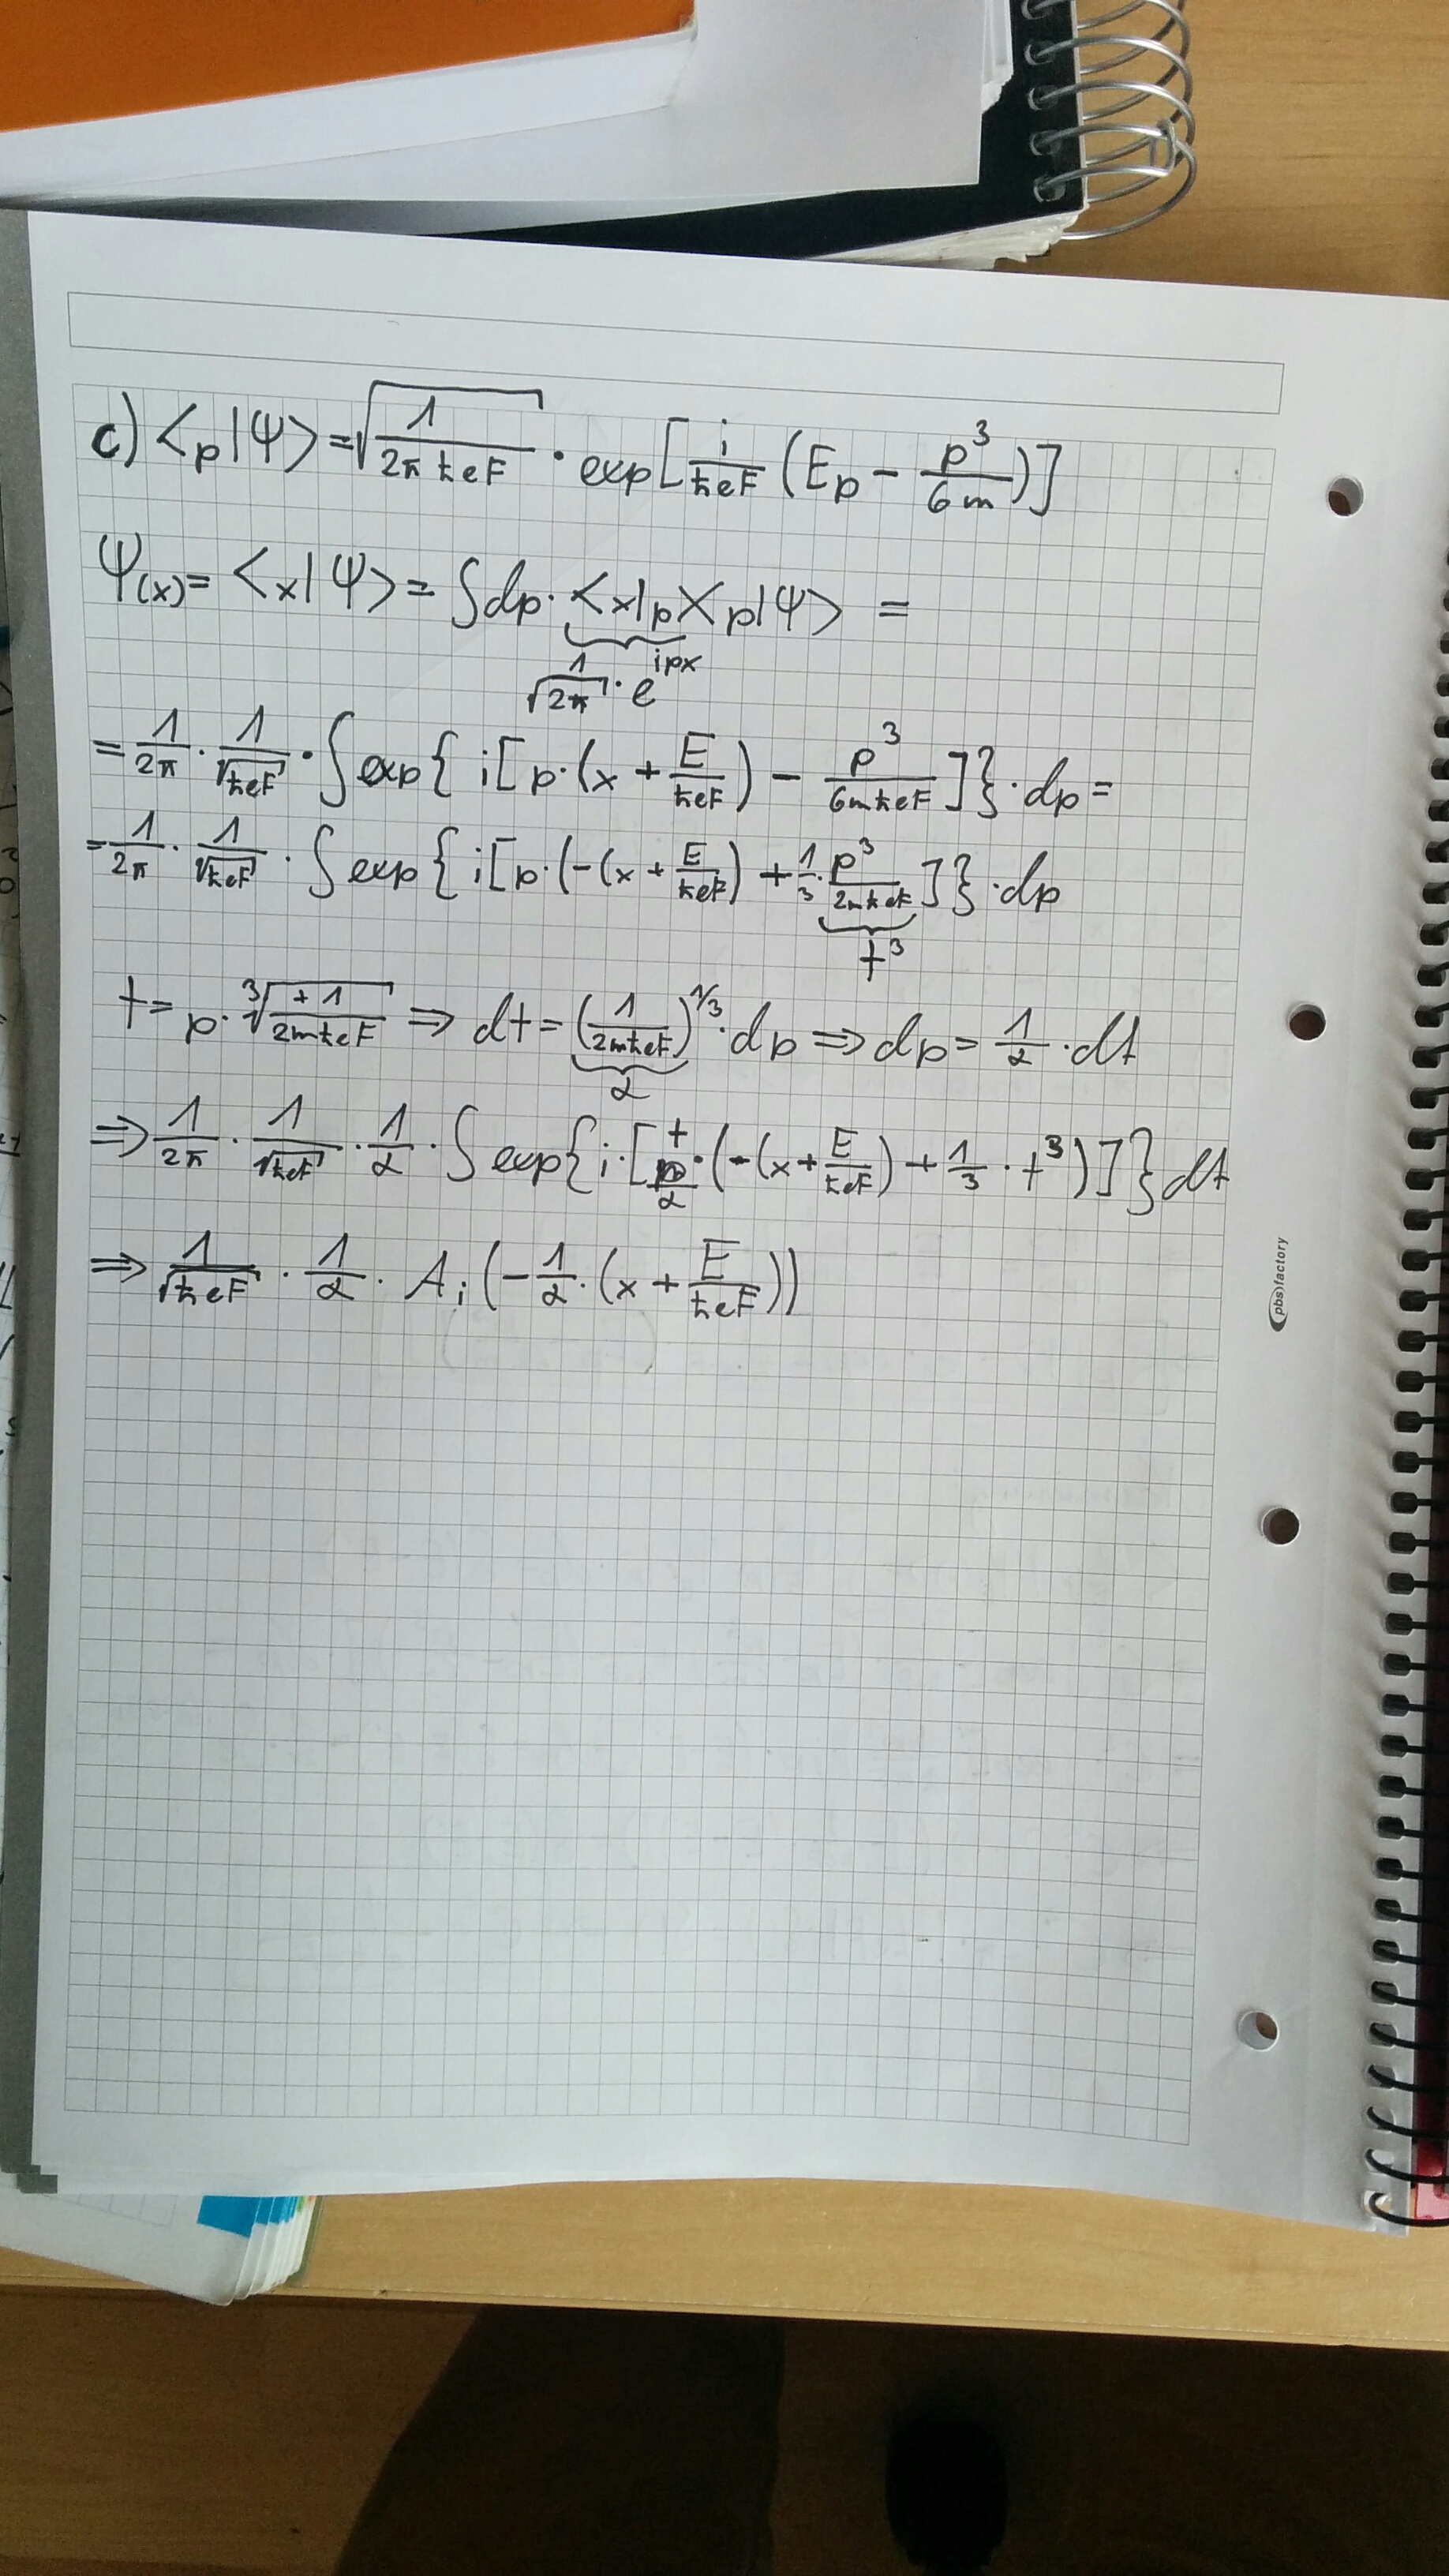 c) <p|Ψ> = √(1/(2π ħeF)) · exp[i/(ħeF) (Ep − p³/(6m))]
Ψ(x) = <x|Ψ> = ∫dp · <x|p><p|Ψ> =
1/√(2π) · e^(ipx)
= 1/(2π) · 1/√(ħeF) · ∫ exp{ i[p·(x + E/(ħeF)) − p³/(6mħeF)]} · dp =
= 1/(2π) · 1/√(ħeF) · ∫ exp{ i[p·(−(x + E/(ħeF)) + 1/3 · p³/(2mħeF)]} · dp
t³
t = p · ³√(+1/(2mħeF)) ⇒ dt = (1/(2mħeF))^(1/3) · dp ⇒ dp = 1/α · dt
α
⇒ 1/(2π) · 1/√(ħeF) · 1/α · ∫ exp{i·[t/α · (−(x + E/(ħeF)) + 1/3 · t³)]} dt
⇒ 1/√(ħeF) · 1/α · Ai(−1/α · (x + E/(ħeF)))
(pbs)factory